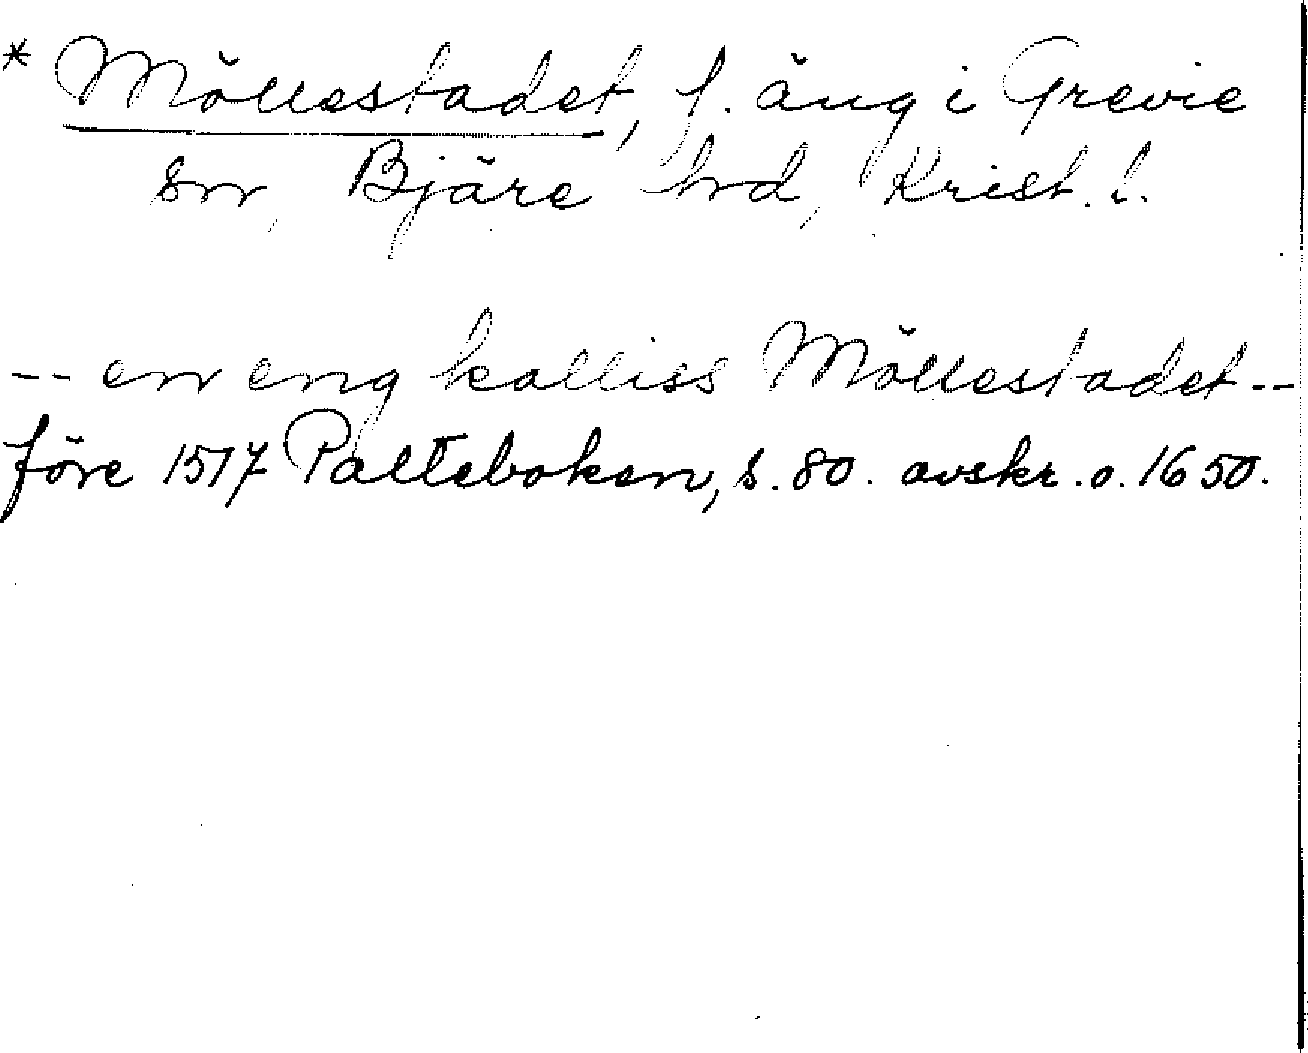 * Möllestadet, f. äng i Grevie
sn, Bjäre hd, Krist. l.
-- en eng kalliss Möllestadet --
före 1517 Palteboken, s. 80. avskr. o. 1650.